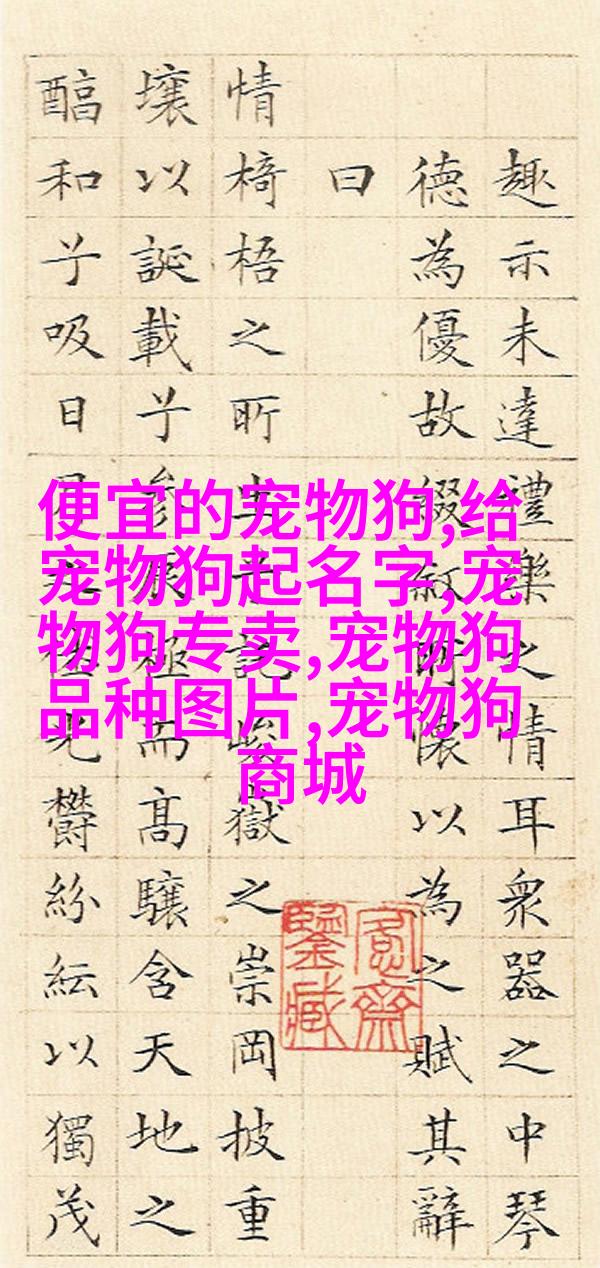 趣示未達禮樂之情耳衆器之中琴
德為優故綴敘所懷以為之賦其辭
曰
情椅梧之所生兮託峻嶽之崇岡披重
壤以誕載兮參辰極而高驤含天地之
醕和兮吸日月之休光鬱紛紜以獨茂
便宜的宠物狗,给
宠物狗起名字,宠
物狗专卖,宠物狗
品种图片,宠物狗
商城
鑒藏